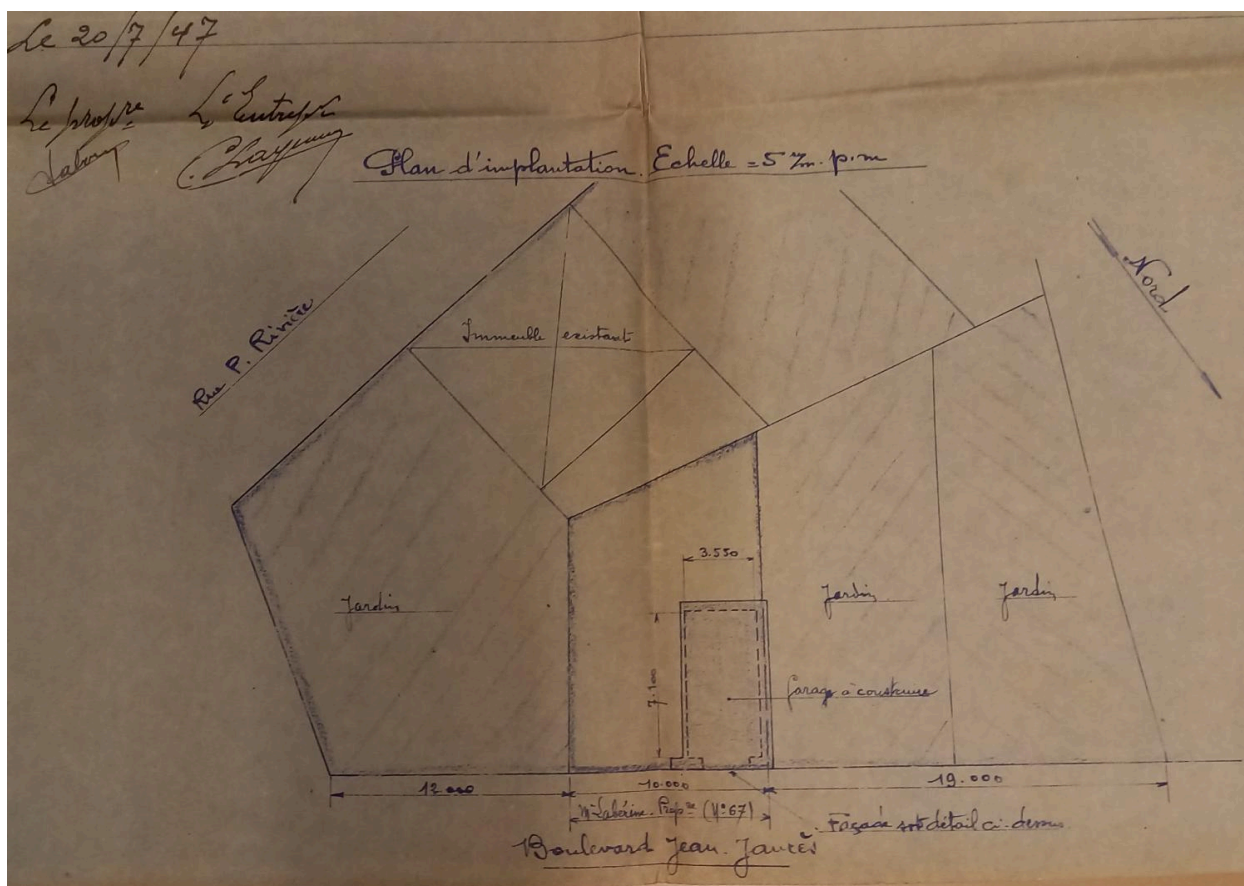 Le 20/7/47
Le propre L'Entrepr
Plan d'implantation. Echelle = 5 %m. p.m
Rue P. Rivière
Nord
Immeuble existant
3.550
Jardin
Jardin
Jardin
7.100
Garage à construire
12.000
10.000
19.000
Mr Labérine. Propre (N° 67)
Façade détail ci-dessus
Boulevard Jean. Jaurès